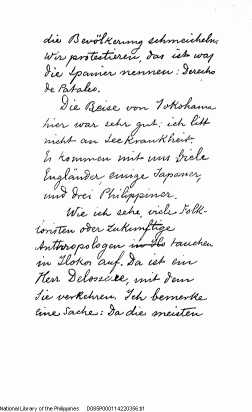 die Bevölkerung schmeicheln.
Wir protestieren, das ist was
die Spanier nennen: Derecho
de Pataleo.
Die Reise von Yokohama
hier war sehr gut: ich litt
nicht an Seekrankheit.
Es kommen mit uns viele
Engländer einige Japaner,
und drei Philippiner.
Wie ich sehe, viele Folk-
loristen oder zukünftige
Anthropologen tauchen
in Ilokos auf. Da ist ein
Herr Deloserre, mit dem
Sie verkehren. Ich bemerke
eine Sache: Da die meisten
National Library of the Philippines